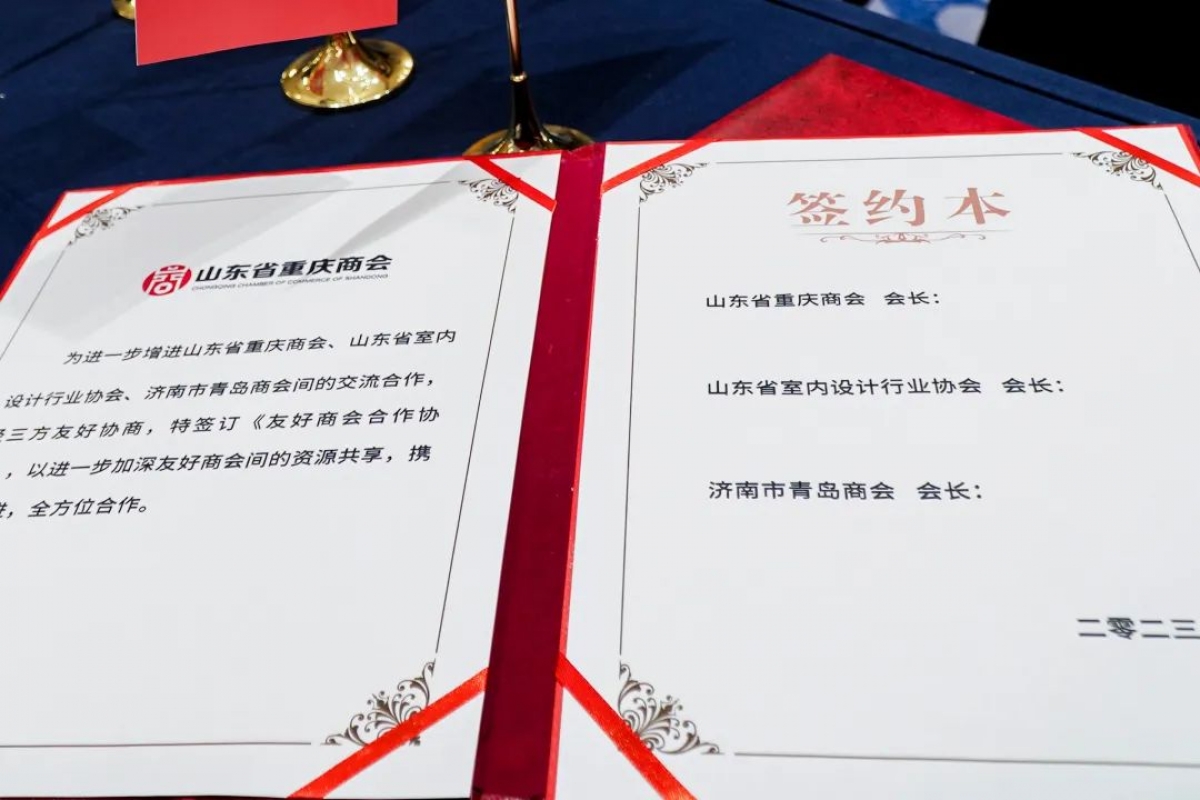 山东省重庆商会
CHONGQING CHAMBER OF COMMERCE OF SHANDONG
为进一步增进山东省重庆商会、山东省室内
设计行业协会、济南市青岛商会间的交流合作，
三方友好协商，特签订《友好商会合作协
，以进一步加深友好商会间的资源共享，携
，全方位合作。
签约本
山东省重庆商会 会长：
山东省室内设计行业协会 会长：
济南市青岛商会 会长：
二零二三